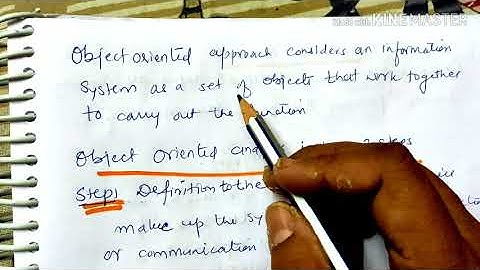 MADE WITH KINEMASTER
Object oriented approach considers an information
System as a set of objects that work together
to carry out the function
Object Oriented steps
Step1 Definition to the
make up the
or communication